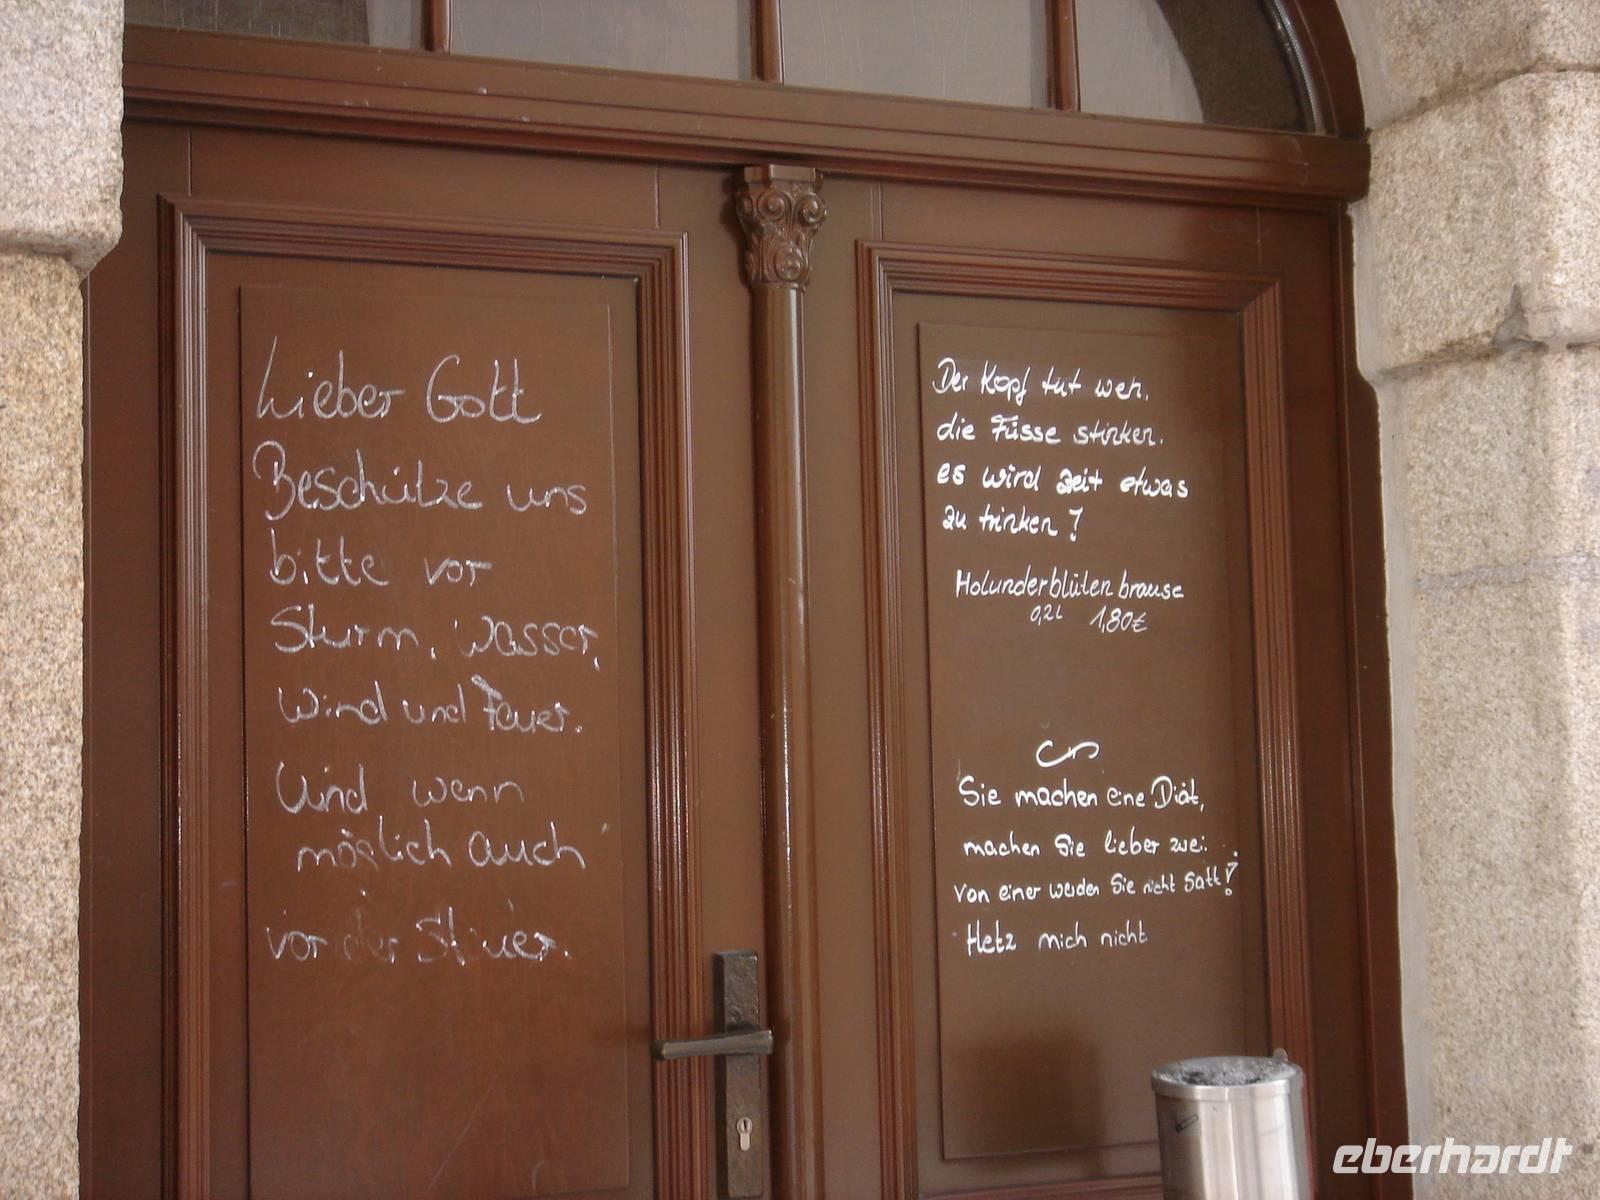 Lieber Gott
Beschütze uns
bitte vor
Sturm, Wasser,
Wind und Feuer.
Und wenn
möglich auch
vor der Steuer.
Der Kopf tut weh,
die Füsse stinken.
es wird Zeit etwas
zu trinken!
Holunderblütenbrause
0,2l 1,80€
Sie machen eine Diät,
machen Sie lieber zwei.
von einer werden Sie nicht satt!
Hetz mich nicht
eberhardt